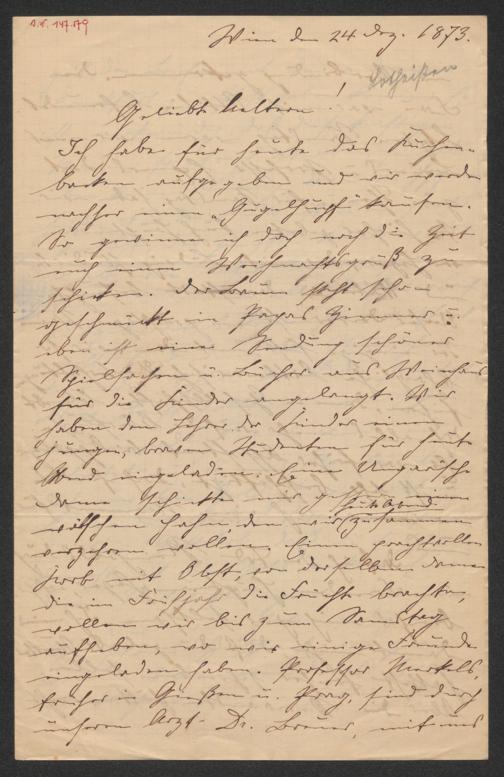 A.N. 147.179
Wien den 24 Dez. 1873.
Lotheißen
Geliebte Aeltern!
Ich habe für heute das Kuchen-
backen aufgegeben und wir werden
nachher einen „Gugelhupf" kaufen.
So gewinne ich doch noch die Zeit
euch einen Weihnachtsgruß zu
schicken. Der Baum steht schon
geschmückt in Papas Zimmer u.
eben ist eine Sendung schöner
Spielsachen u. Bücher aus
für die Kinder angelangt. Wir
haben den Lehrer der Kinder einen
jungen, braven Studenten für heute
Abend eingeladen. Eine Ungarische
Dame schickte mir gestern einen
wälschen Hahn, den wir heute Abend zusammen
verzehren wollen. Einen prachtvollen
Korb mit Obst, von derselben Dame
die im Frühjahr die Früchte brachte,
wollen wir bis zum Samstag
aufheben, wo wir einige Freunde
eingeladen haben. Professor Merkels,
früher in Gießen u. Prag, sind durch
unseren Arzt Dr. Breuer, mit uns